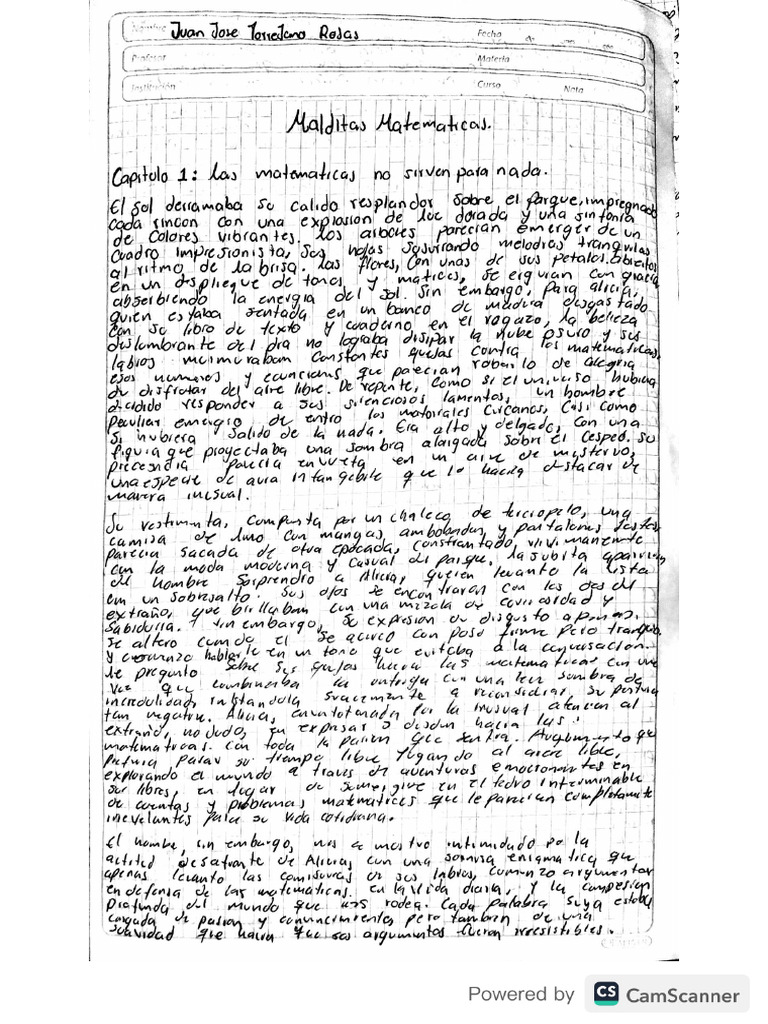 Nombre Juan Jose Torrejano Rosas Fecha
Profesor Materia
Institución Curso Nota
Malditas Matematicas.
Capitulo 1: Las matematicas no sirven para nada.
El sol derramaba su calido resplandor sobre el parque, impregnado
cada rincon con una explosion de luz dorada y una sinfonia
de colores vibrantes. los arboles parecian emerger de un
cuadro impresionista, sus hojas susurrando melodias tranquilas
al ritmo de la brisa. las flores, con unas de sus petalos abiertos
en un despliegue de tonos y matices, se erguian con gracia
absorbiendo la energia del sol. Sin embargo, para alicia,
quien estaba sentada en un banco de madera desgastado
con su libro de texto y cuaderno en el regazo, la belleza
deslumbrante del dia no lograba disipar la nube oscuro y sus
labios murmuraban constantes quejas contra las matematicas,
esos numeros y ecuaciones que parecian robarlo de alegria
de disfrutar del aire libre. De repente, como si el universo hubiera
decidido responder a sus silenciosos lamentos, un hombre
peculiar emergio de entro los matorrales cercanos, casi como
si hubiera salido de la nada. Era alto y delgado, con una
figura que proyectaba una sombra alargada sobre el cesped. su
precesndia parecia envuelta en un aire de misterio,
una especie de aura intangible que lo hacia destacar de
manera inusual.
Su vestimenta, compuesta por un chaleco de terciopelo, una
camisa de lino con mangas y pantalones
parecia sacada de otra
con la moda moderna y casual del parque, la subita aparicion
del hombre sorprendio a Alicia, quien levanto la vista
em un sobresalto. Sus ojos se encontraron con los ojos del
extraño, que brillaban con una mezcla de curiosidad y
sabiduria. sin embargo, su expresion de disgusto apenas
se altero cuando el se acerco con paso firme pero tranquilo
y comenzo hablarle en un tono que evitaba a la conversacion.
le pregunto sobre sus quejas hacia las matematicas con una
voz que combinaba la intriga con una leve sombra de
incredulidad, instandola suavemente a reconsiderar su postura
tan negativa. Alicia, por la inusual atencion al
extraño, no dudo en expresar desden hacia las
matematicas. con toda la pasion que sentia. Argumento que
preferia pasar su tiempo libre jugando al aire libre,
explorando el mundo a traves de aventuras emocionantes en
sus libros, en lugar de sumergirse en el tedio interminable
de cuentas y problemas matematicos que le parecian completamente
irrelevantes para su vida cotidiana.
El hombre, sin embargo, nos se mostro intimidado por la
actitud desafiante de Alicia, con una sonrisa enigmatica que
apenas levanto las comisuras de sus labios, comenzo argumentar
en defensa de las matematicas. en la vida diaria, y la compresion
profunda del mundo que nos rodea. Cada palabra suya estaba
cargada de pasion y convencimientos pero tambien de una
suavidad que hacia que sus argumentos fueran irresistibles.
Powered by CS CamScanner